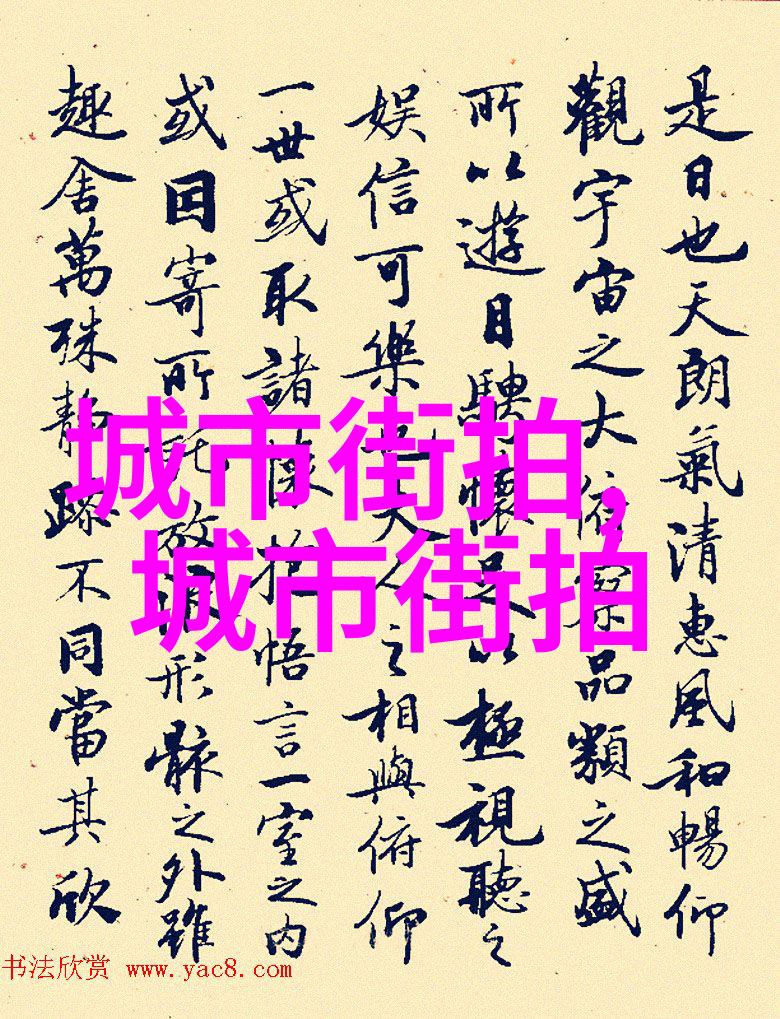 是日也天朗氣清惠風和暢仰
觀宇宙之大俯察品類之盛
所以遊目騁懷足以極視聽之
娱信可樂也夫人之相與俯仰
一世或取諸懷抱悟言一室之内
或因寄所託放浪形骸之外雖
趣舍萬殊静躁不同當其欣
城市街拍，
城市街拍
书法欣赏 www.yac8.com